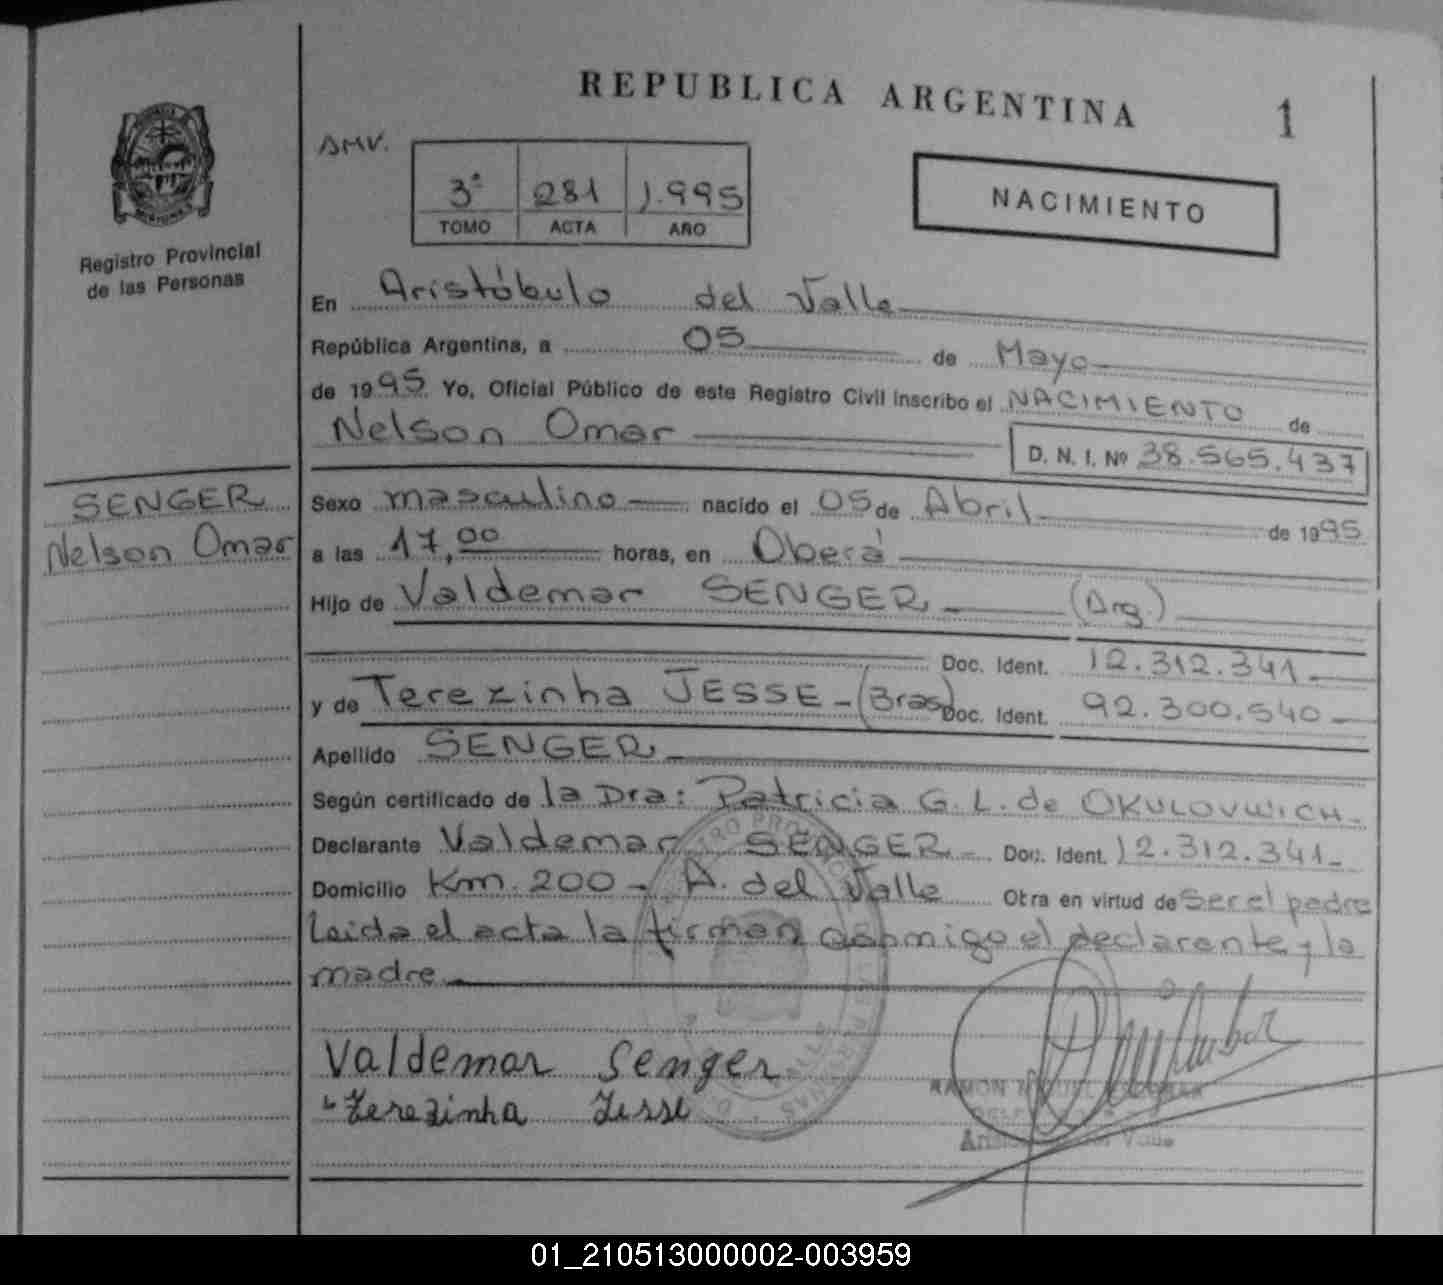 REPUBLICA ARGENTINA 1
AMV.
3ª 281 1.995
TOMO ACTA AÑO
NACIMIENTO
Registro Provincial
de las Personas
En Aristóbulo del Valle
República Argentina, a 05 de Mayo
de 1995 Yo, Oficial Público de este Registro Civil inscribo el NACIMIENTO de
Nelson Omar D. N. I. Nº 38.565.437
SENGER
Nelson Omar
Sexo masculino nacido el 05 de Abril de 1995
a las 17,00 horas, en Oberá
Hijo de Valdemar SENGER (Arg.)
Doc. Ident. 12.312.341
y de Terezinha JESSE (Bras) Doc. Ident. 92.300.540
Apellido SENGER
Según certificado de la Dra: Patricia G. L. de OKULOVWICH
Declarante Valdemar SENGER Doc. Ident. 12.312.341
Domicilio Km. 200 - A. del Valle Otra en virtud de Ser el padre
Leida el acta la firman conmigo el declarante y la
madre
Valdemar Senger
Terezinha Jesse
RAMON
Valle
01_210513000002-003959